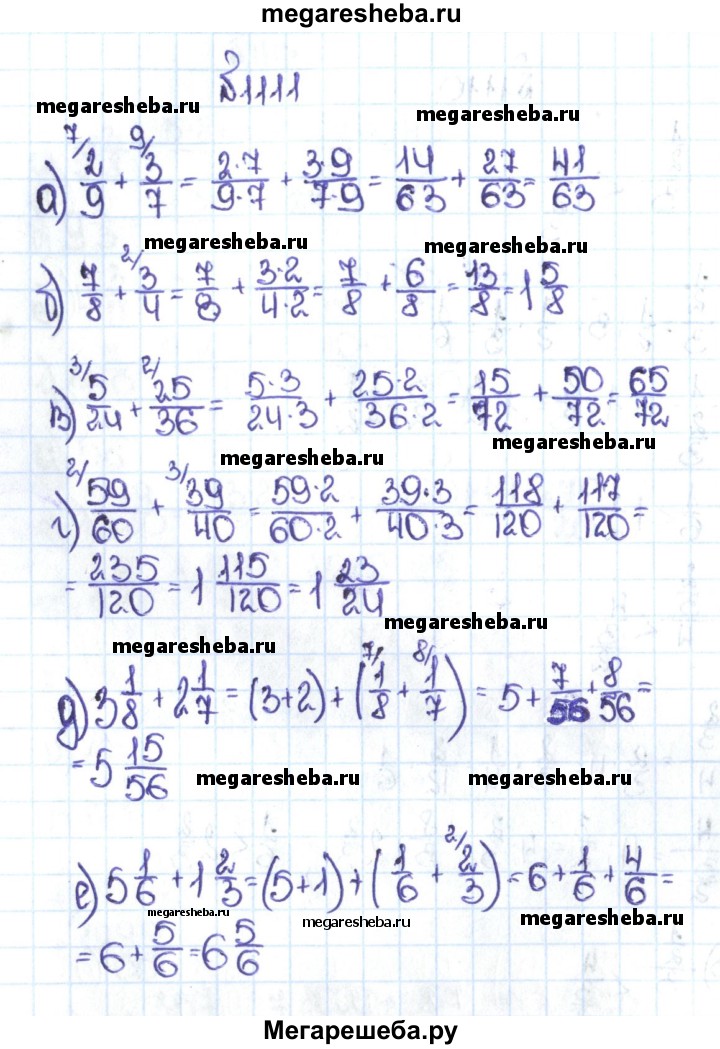 megaresheba.ru
№1111
megaresheba.ru
megaresheba.ru
а) 7/ 2/9 + 9/ 3/7 = 2·7/9·7 + 3·9/7·9 = 14/63 + 27/63 = 41/63
megaresheba.ru
megaresheba.ru
б) 7/8 + 2/ 3/4 = 7/8 + 3·2/4·2 = 7/8 + 6/8 = 13/8 = 1 5/8
в) 3/ 5/24 + 2/ 25/36 = 5·3/24·3 + 25·2/36·2 = 15/72 + 50/72 = 65/72
megaresheba.ru
megaresheba.ru
г) 2/ 59/60 + 3/ 39/40 = 59·2/60·2 + 39·3/40·3 = 118/120 + 117/120 =
= 235/120 = 1 115/120 = 1 23/24
megaresheba.ru
megaresheba.ru
д) 3 1/8 + 2 1/7 = (3+2) + (7/ 1/8 + 8/ 1/7) = 5 + 7/56 + 8/56 =
= 5 15/56
megaresheba.ru
megaresheba.ru
е) 5 1/6 + 1 2/3 = (5+1) + (1/6 + 2/ 2/3) = 6 + 1/6 + 4/6 =
megaresheba.ru
megaresheba.ru
megaresheba.ru
= 6 + 5/6 = 6 5/6
Мегарешеба.ру